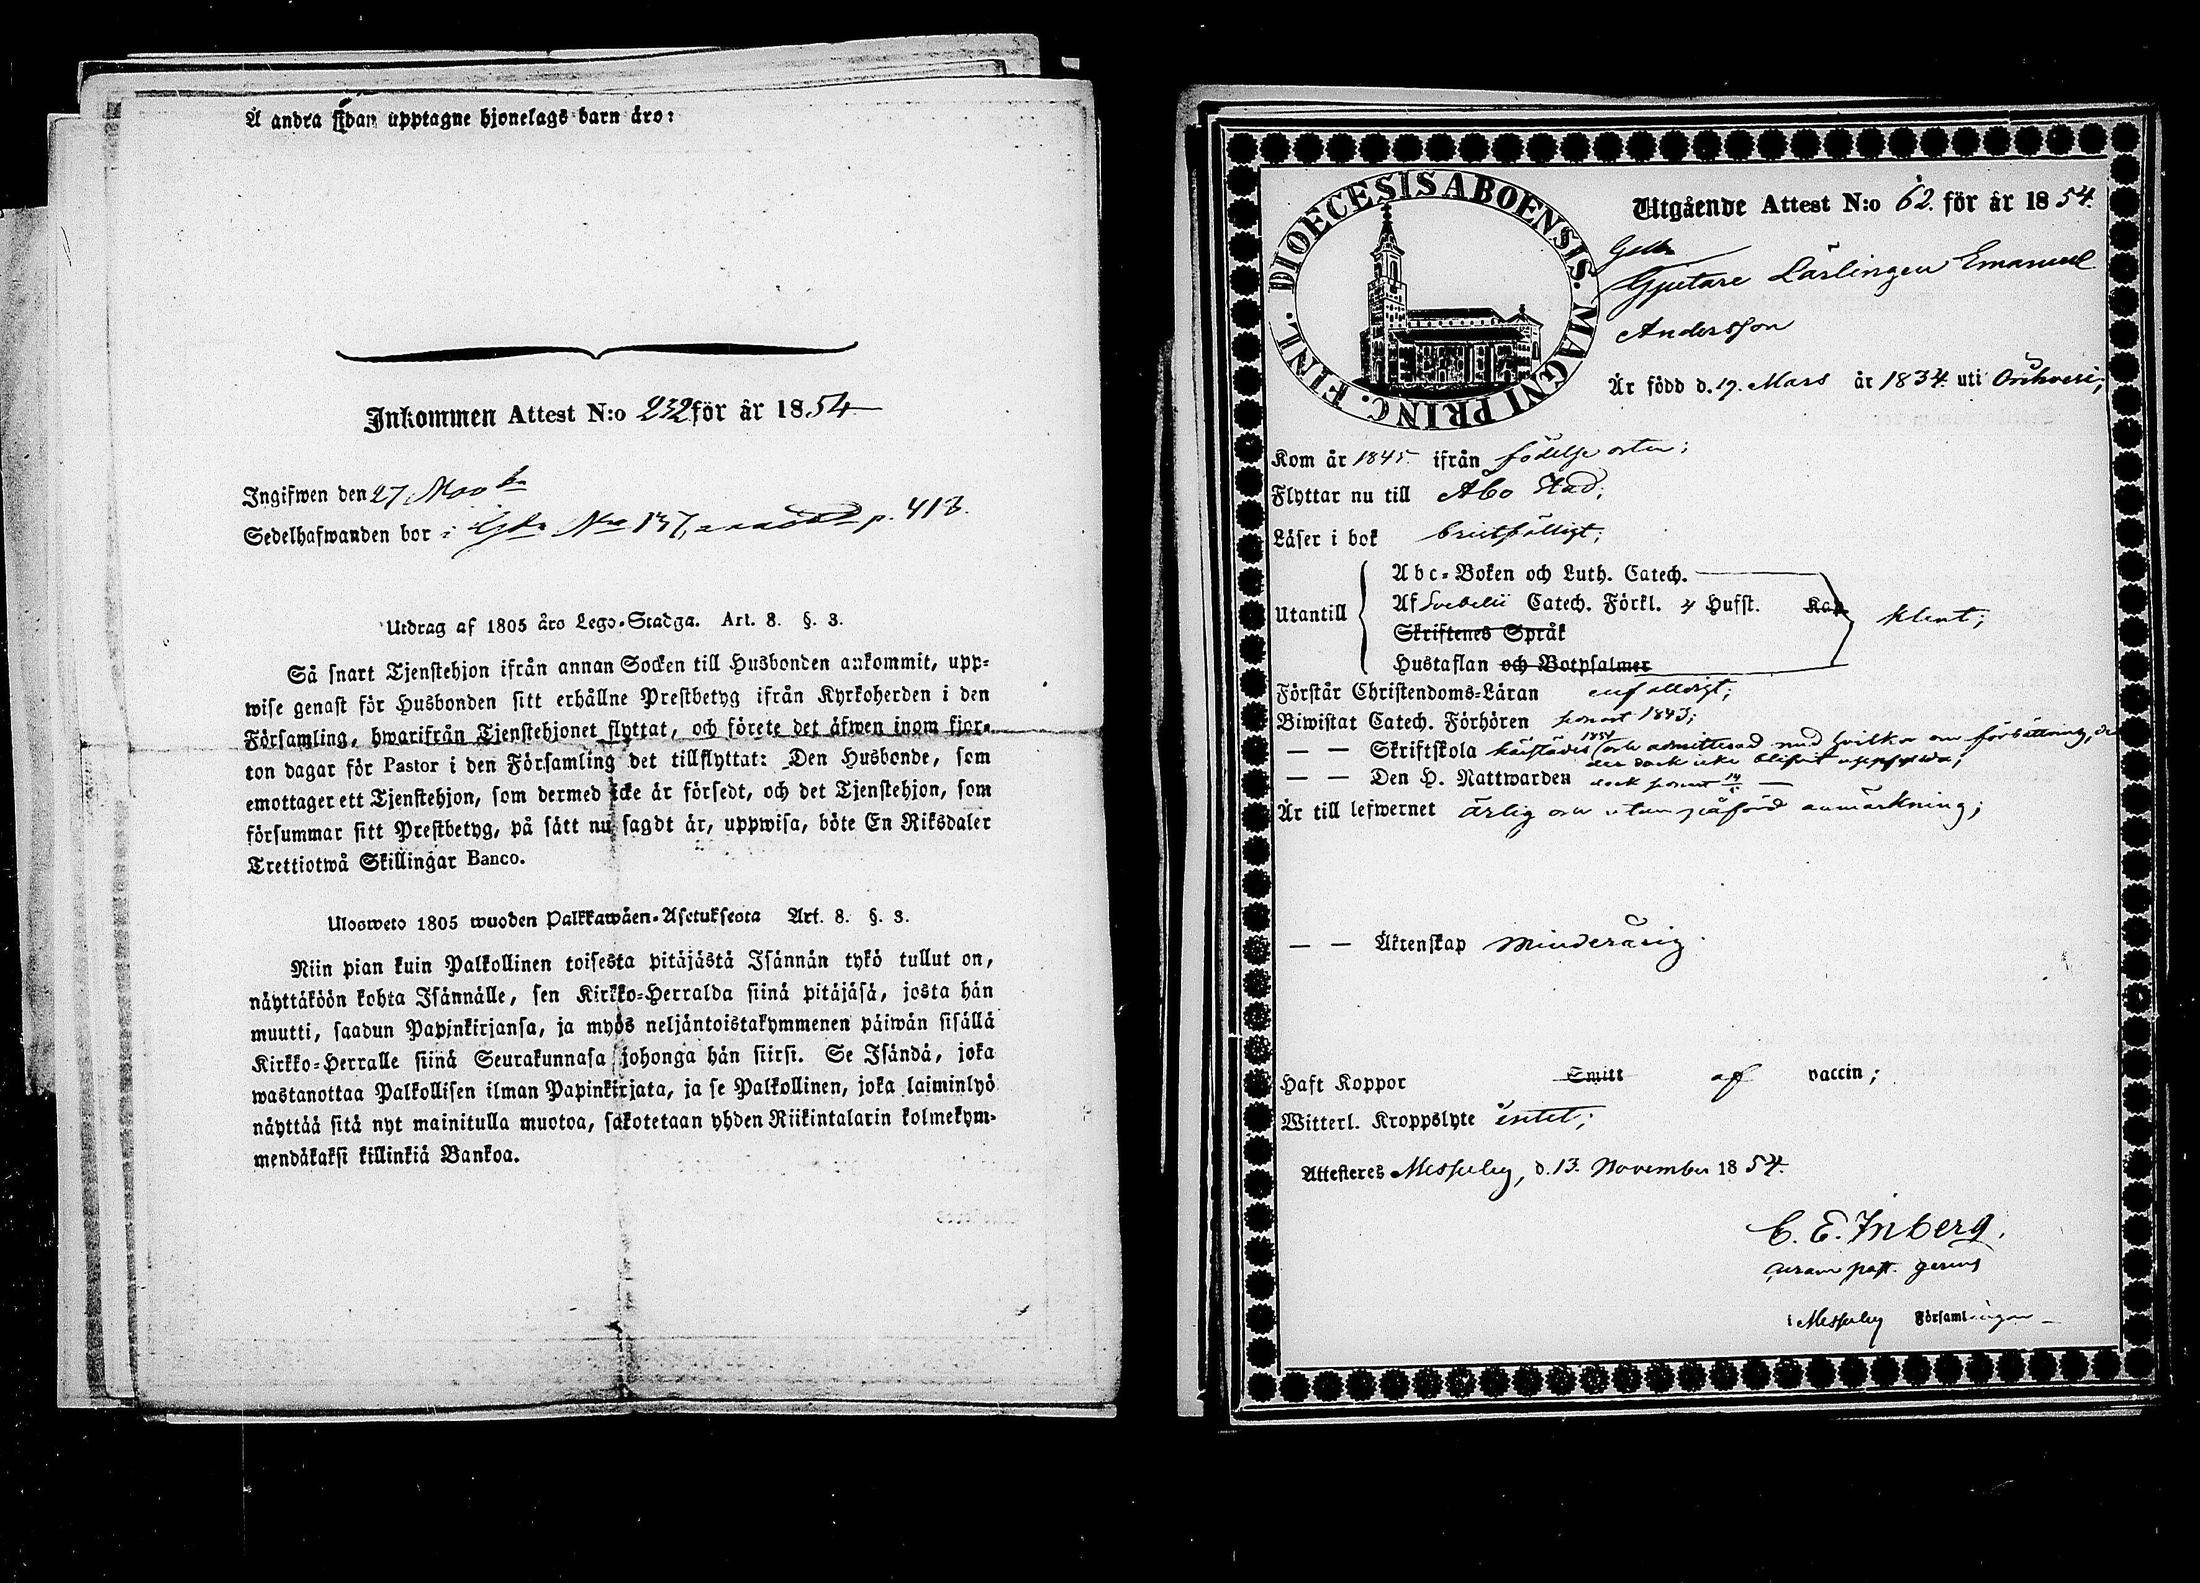 Å andra sidan upptagne hjonelags barn äro:
Inkommen Attest N:o 232 för år 1854
Ingifwen den 27 Novbr
Sedelhafwanden bor i N:o 137, p. 413.
Utdrag af 1805 års Lego-Stadga. Art. 8. §. 3.
Så snart Tjenstehjon ifrån annan Socken till Husbonden ankommit, upp-
wise genast för Husbonden sitt erhållne Prestbetyg ifrån Kyrkoherden i den
Församling, hwarifrån Tjenstehjonet flyttat, och förete det äfwen inom fjor-
ton dagar för Pastor i den Församling det tillflyttat: Den Husbonde, som
emottager ett Tjenstehjon, som dermed icke är försedt, och det Tjenstehjon, som
försummar sitt Prestbetyg, på sätt nu sagdt är, uppwisa, böte En Riksdaler
Trettiotwå Skillingar Banco.
Ulosweto 1805 wuoden Palkkawäen-Asetuksesta Art. 8. §. 3.
Niin pian kuin Palkollinen toisesta pitäjästä Isännän tykö tullut on,
näyttäköön kohta Isännälle, sen Kirkko-Herralda siinä pitäjäsä, josta hän
muutti, saadun Papinkirjansa, ja myös neljäntoistakymmenen päiwän sisällä
Kirkko-Herralle siinä Seurakunnasa johonga hän siirsi. Se Isändä, joka
wastanottaa Palkollisen ilman Papinkirjata, ja se Palkollinen, joka laiminlyö
näyttää sitä nyt mainitulla muotoa, sakotetaan yhden Riikintalarin kolmekym-
mendäkaksi killinkiä Bankoa.
DIOECESIS ABOENSIS. MAGNI PRINC. FINL.
Utgående Attest N:o 62. för år 1854.
Gjutare Lärlingen Emanuel
Andersson
Är född d. 19. Mars år 1834. uti Orihvesi;
Kom år 1845. ifrån födelse orten;
Flyttar nu till Åbo Stad;
Läser i bok bristfälligt;
Utantill
Abc-Boken och Luth. Catech.
Af Svebelii Catech. Förkl. 4 Hufst. Kap
Skriftenes Språk
Hustaflan och Botpsalmer
klent;
Förstår Christendoms-Läran enfaldigt;
Biwistat Catech. Förhören senast 1843;
— — Skriftskola härstädes 1854 och admitterad med vilkor om förbättring, de
der dock icke blifvit uppfyldt;
— — Den H. Nattwarden dock senast
Är till lefwernet ärlig och utan påförd anmärkning;
— — Äktenskap Minderårig.
Haft Koppor Smitt af vaccin;
Witterl. Kroppslyte intet;
Attesteres Messuby, d. 13. November 1854.
C. E. Inberg.
curam past. gerens
i Messuby Församlingar